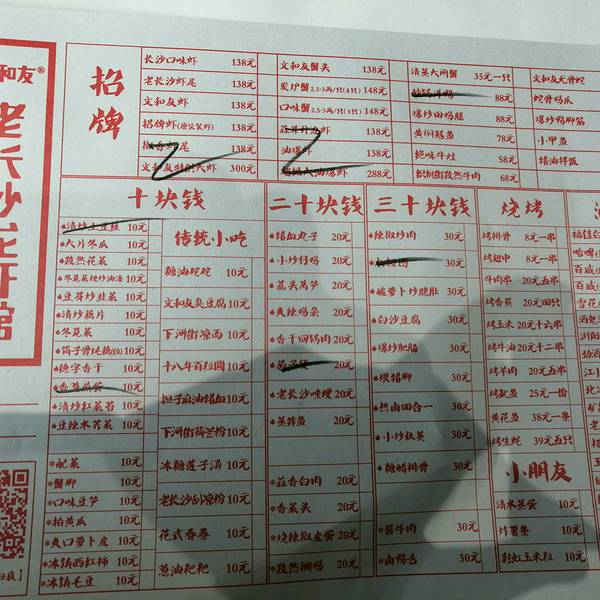 和友®
老长沙龙虾馆
招牌
长沙口味虾 138元
老长沙虾尾 138元
文和友虾 138元
招牌虾(原浆装虾) 138元
虾尾 138元
300元
文和友蟹头 138元
炭炉蟹 2.5-3两/只(4只) 148元
口味蟹 2.5-3两/只(5只) 148元
138元
油爆虾 138元
大油爆虾 288元
清蒸大闸蟹 35元一只
88元
爆炒田鸡腿 88元
黄焖鳝鱼 78元
绝味牛蛙 58元
孜然牛肉 68元
文和友无骨蛇
蛇骨鸡爪
爆炒鸭脚筋
小甲鱼
猪油拌饭
十块钱
清炒土豆丝 10元
大片冬瓜 10元
孜然花菜 10元
冬苋菜梗炒油渣 10元
豆芽炒韭菜 10元
清炒藕片 10元
冬苋菜 10元
筒子骨炖藕(位) 10元
德字香干 10元
香葱煎蛋 10元
清炒红菜苔 10元
豆豉水芹菜 10元
配菜 10元
蟹脚 10元
口味豆笋 10元
拍黄瓜 10元
爽口萝卜皮 10元
冰镇西红柿 10元
冰镇毛豆 10元
传统小吃
糖油坨坨 10元
文和友臭豆腐 10元
下河街凉面 10元
十八年百粒圆 10元
担子麻油猪血 10元
下河街荷兰粉 10元
冰糖莲子汤 10元
老长沙刮凉粉 10元
花式春卷 10元
葱油粑粑 10元
二十块钱
猪血丸子 20元
小炒仔鸡 20元
荔头莴笋 20元
爽辣鸡杂 20元
香干回锅肉 20元
20元
老长沙嗦螺 20元
蒸排鱼 20元
蒜香白肉 20元
香菜头 20元
烧辣椒皮蛋 20元
孜然捆鸡 20元
三十块钱
辣椒炒肉 30元
30元
酸萝卜炒脆肚 30元
白沙豆腐 30元
爆炒肥肠 30元
煨猪脚 30元
热卤四合一 30元
小炒猪 30元
糖醋排骨 30元
酱牛肉 30元
卤鸭舌 30元
烧烤
烤排骨 8元一串
烤翅中 8元一串
牛肉串 20元五串
烤香蕉 20元四只
烤玉米 20元十六串
烤牛油 20元十二串
烤羊肉 20元五串
烤鱿鱼 25元一份
黄花鱼 38元一条
烤生蚝 39元五只
小朋友
清水蒸蛋 10元
炸薯条 10元
彩虹玉米粒 10元
福佳白
哈啤
百威
百威
雪花